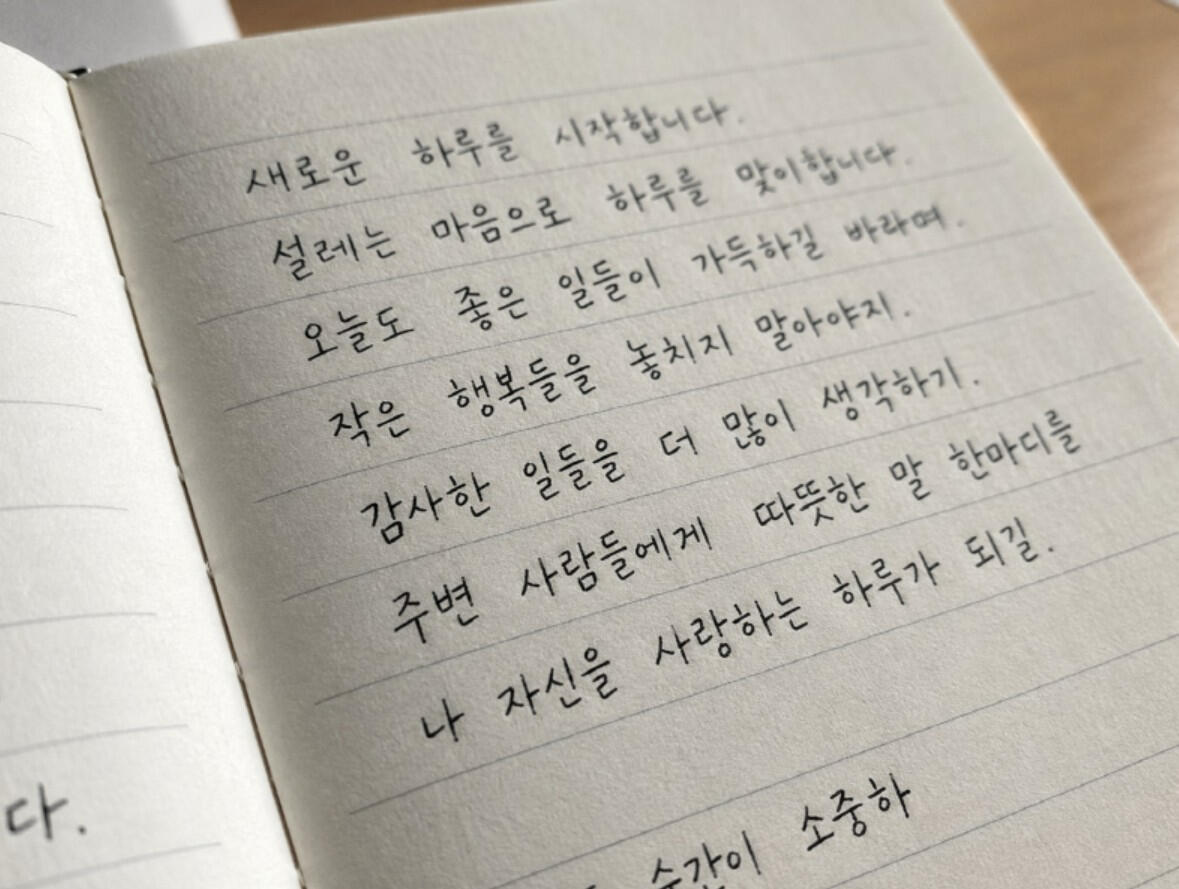 다.
새로운 하루를 시작합니다.
설레는 마음으로 하루를 맞이합니다.
오늘도 좋은 일들이 가득하길 바라며.
작은 행복들을 놓치지 말아야지.
감사한 일들을 더 많이 생각하기.
주변 사람들에게 따뜻한 말 한마디를
나 자신을 사랑하는 하루가 되길.
순간이 소중하